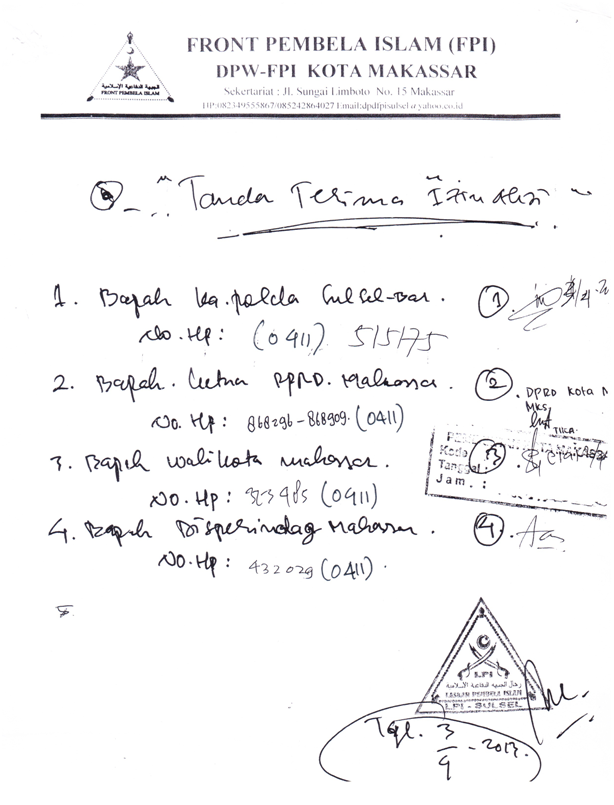 FRONT PEMBELA ISLAM (FPI)
DPW-FPI KOTA MAKASSAR
Sekertariat : Jl. Sungai Limboto No. 15 Makassar
HP:082349555867/085242864027 Email:dpdfpisulsel@yahoo.co.id
الجبهة الدفاعية الإسلامية
FRONT PEMBELA ISLAM
" Tanda Terima Izin Aksi "
1. Bapak Ka.polda Sulsel-Bar. 1.
No. Hp: (0411) 515175
2. Bapak Ketua DPRD. Makassar. 2. DPRD Kota
MKS
TIKA
No. Hp: 868296-868909. (0411)
3. Bapak walikota makassar. 3.
Kode
Tanggal :
Jam . :
NO. Hp: 323485 (0411)
4. Bapak Disperindag Makassar. 4.
No. Hp: 432029 (0411).
LPI
LASKAR PEMBELA ISLAM
LPI - SULSEL
Tgl. 3/9 - 2013.